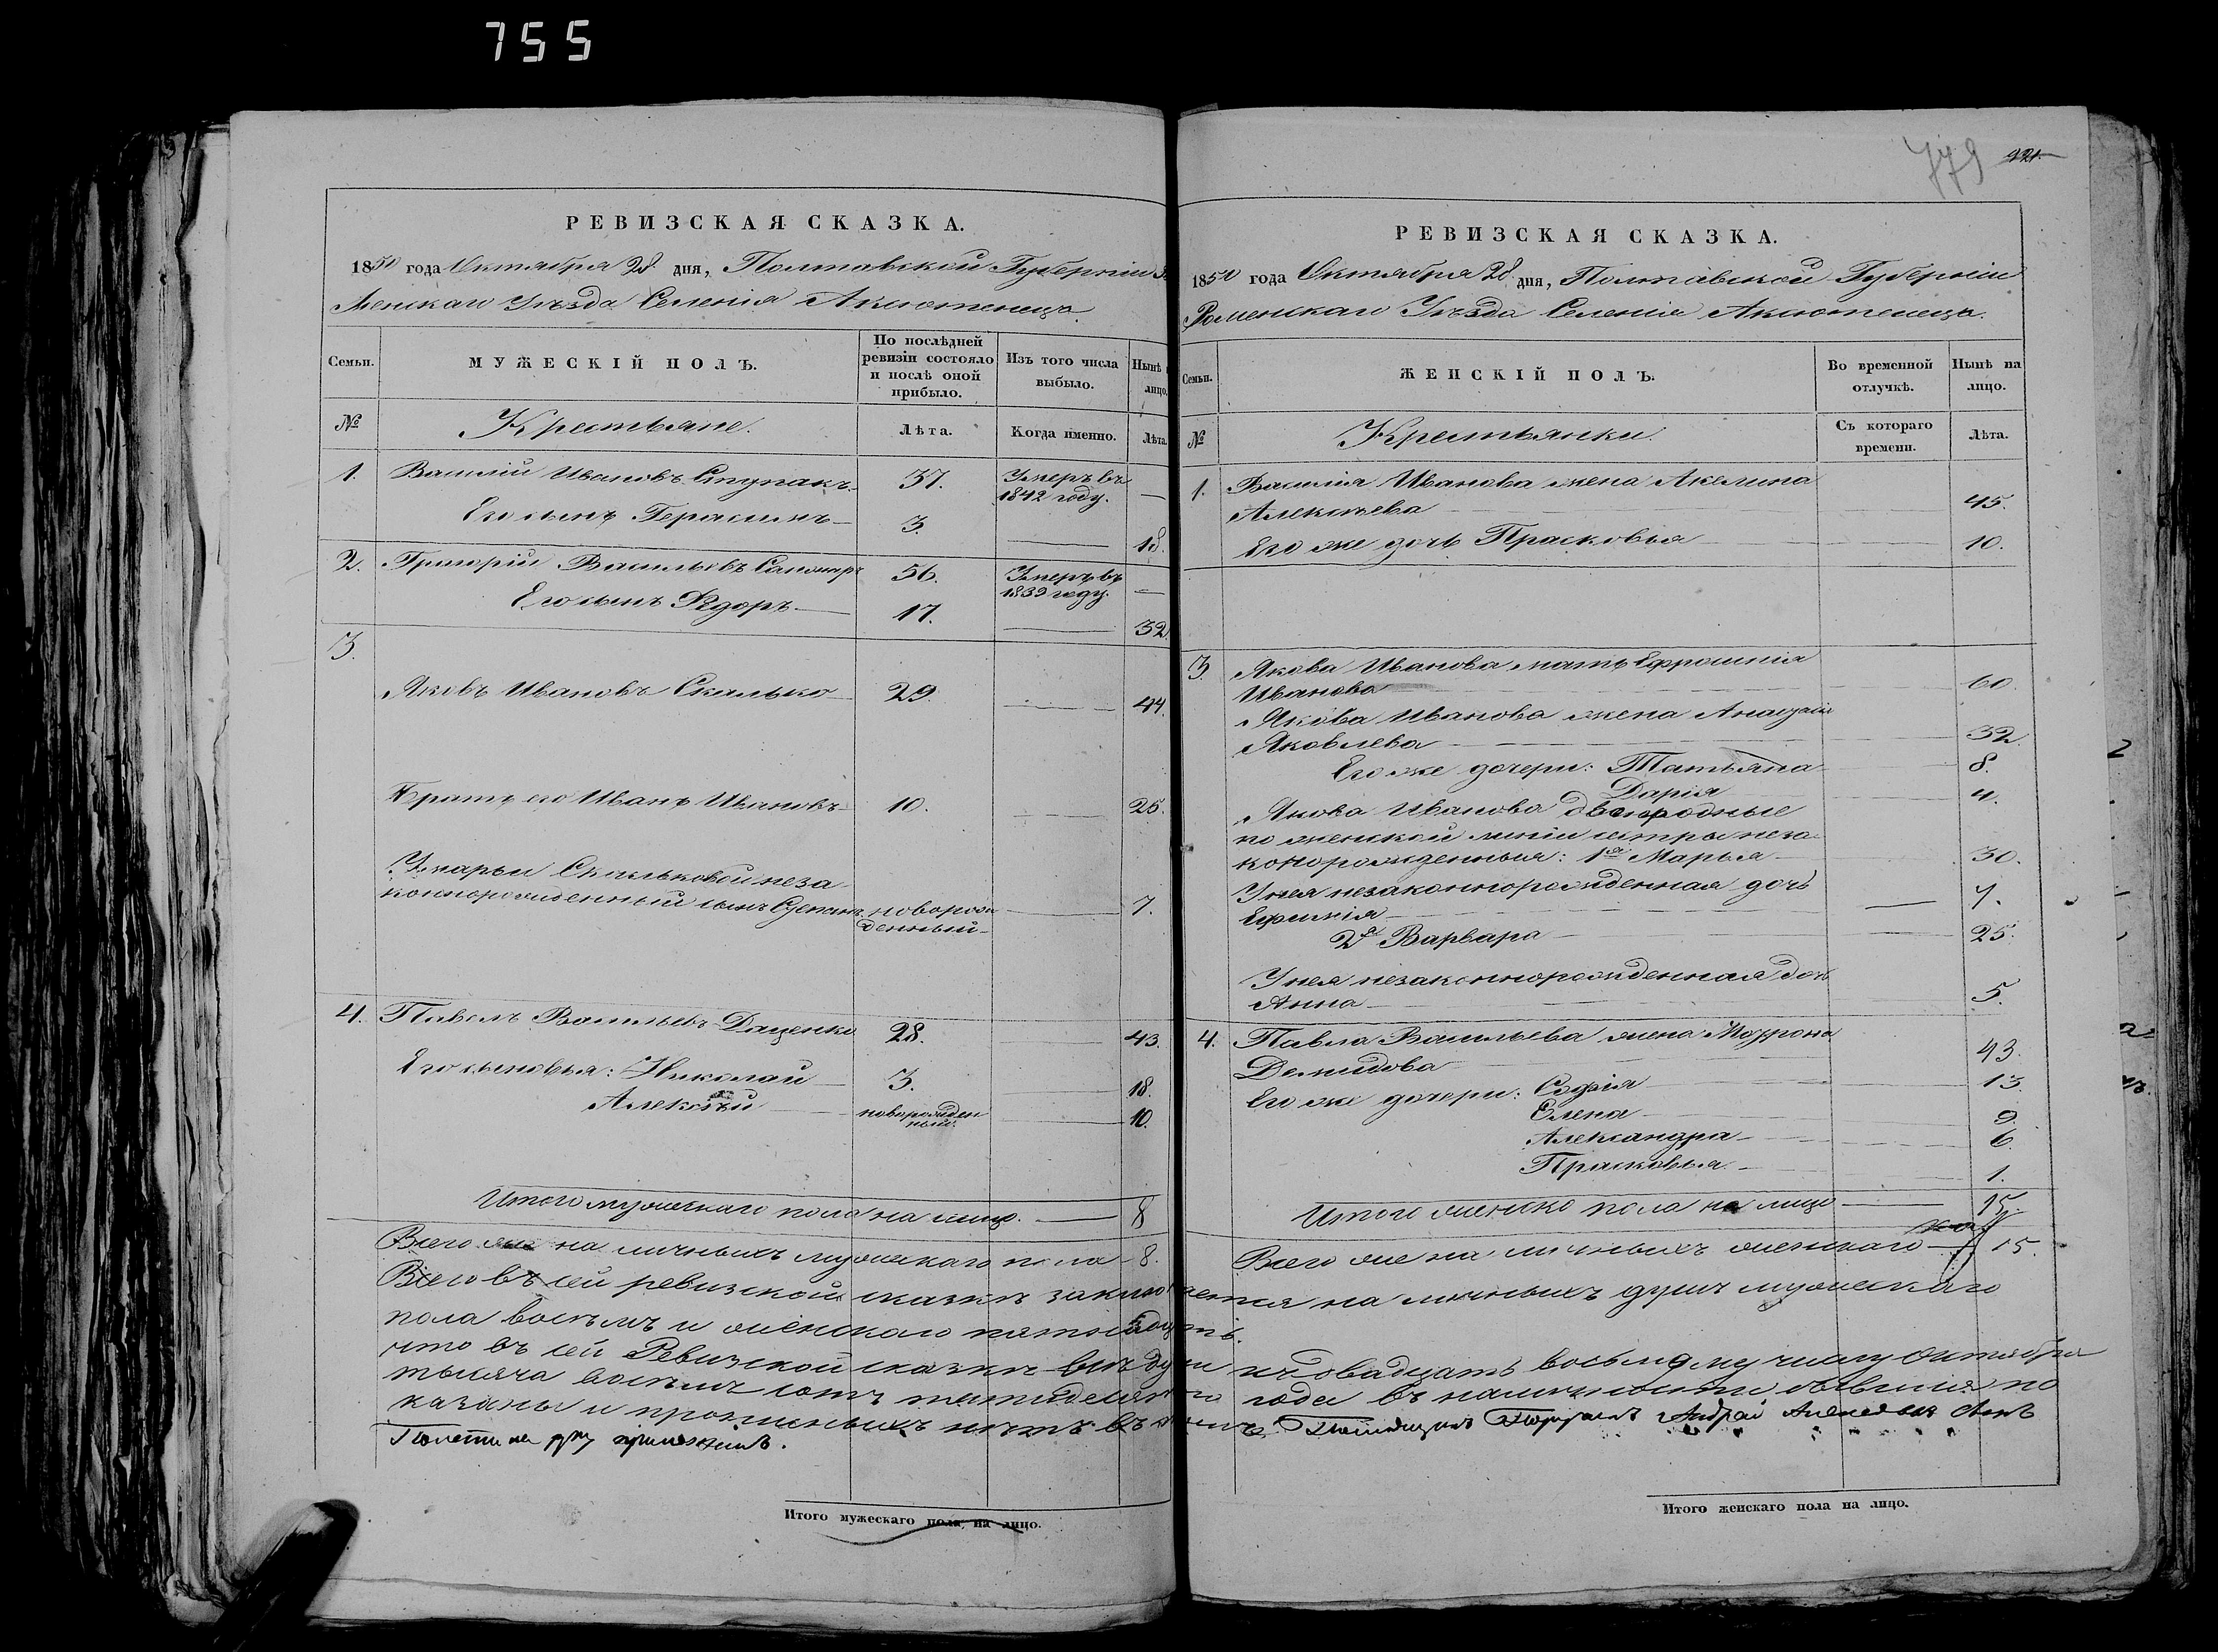 755
РЕВИЗСКАЯ СКАЗКА.
1850 года Октября 28 дня, Полтавской Губерніи
Менскаго Уѣзда Селенія Аксютенецъ.
Семьи.
МУЖЕСКІЙ ПОЛЪ.
По послѣдней ревизіи состояло и послѣ оной прибыло.
Изъ того числа выбыло.
Нынѣ лицо.
№
Крестьяне.
Лѣта.
Когда именно.
Лѣта.
1. Василій Ивановъ Ступакъ 37. Умеръ въ 1842 году. —
Его сынъ Герасимъ 3. — 18.
2. Григорій Васильевъ 56. Умеръ въ 1839 году. —
Его сынъ Ѳедоръ 17. — 32.
3.
Яковъ Ивановъ Скалько 29. — 44.
Братъ его Иванъ Ивановъ 10. — 25.
У Марьи Скальковой неза
коннорожденный сынъ Степанъ новорож
денный — 7.
4. Павелъ Васильевъ Даценко 28. — 43.
Его сыновья: Николай 3. — 18.
Алексѣй новорожден
ный — 10.
Итого мужескаго пола на лицо. — 8
Всего же на личныхъ мужескаго пола 8.
Итого мужескаго пола, на лицо.
779 221
РЕВИЗСКАЯ СКАЗКА.
1850 года Октября 28 дня, Полтавской Губерніи
Роменскаго Уѣзда Селенія Аксютенецъ.
Семьи.
ЖЕНСКІЙ ПОЛЪ.
Во временной отлучкѣ.
Нынѣ на лицо.
№
Крестьянки.
Съ котораго времени.
Лѣта.
1. Василія Иванова жена Акелина
Алексѣева 45.
Его же дочь Прасковья 10.
3. Якова Иванова мать Ефросинія
Иванова 60.
Якова Иванова жена Анастасія
Яковлева 32.
Его же дочери: Татьяна 8.
Дарія 4.
Якова Иванова двоюродные
по женской линіи сестры неза
конорожденныя: 1я Марья 30.
У нея незаконнорожденная дочь
Ефимія — 7.
2я Варвара 25.
У нея незаконнорожденная дочь
Анна 5.
4. Павла Васильева жена Матрона
Демидова 43.
Его же дочери: Софія 13.
Елена 9.
Александра 6.
Прасковья 1.
Итого женско пола на лицо 15.
Всего же на личныхъ женскаго 15.
Всего въ сей ревизской сказкѣ заключается на личныхъ душъ мужескаго
пола восемь и женскаго пятнадцать.
что въ сей Ревизской сказкѣ всѣ души къ двадцать восьмому числу Октября
тысяча восемь сотъ пятидесятого года въ наличности бывшія по
казаны и прописныхъ нѣтъ въ томъ Андрей Алексѣевъ сынъ
руку приложилъ.
Итого женскаго пола на лицо.